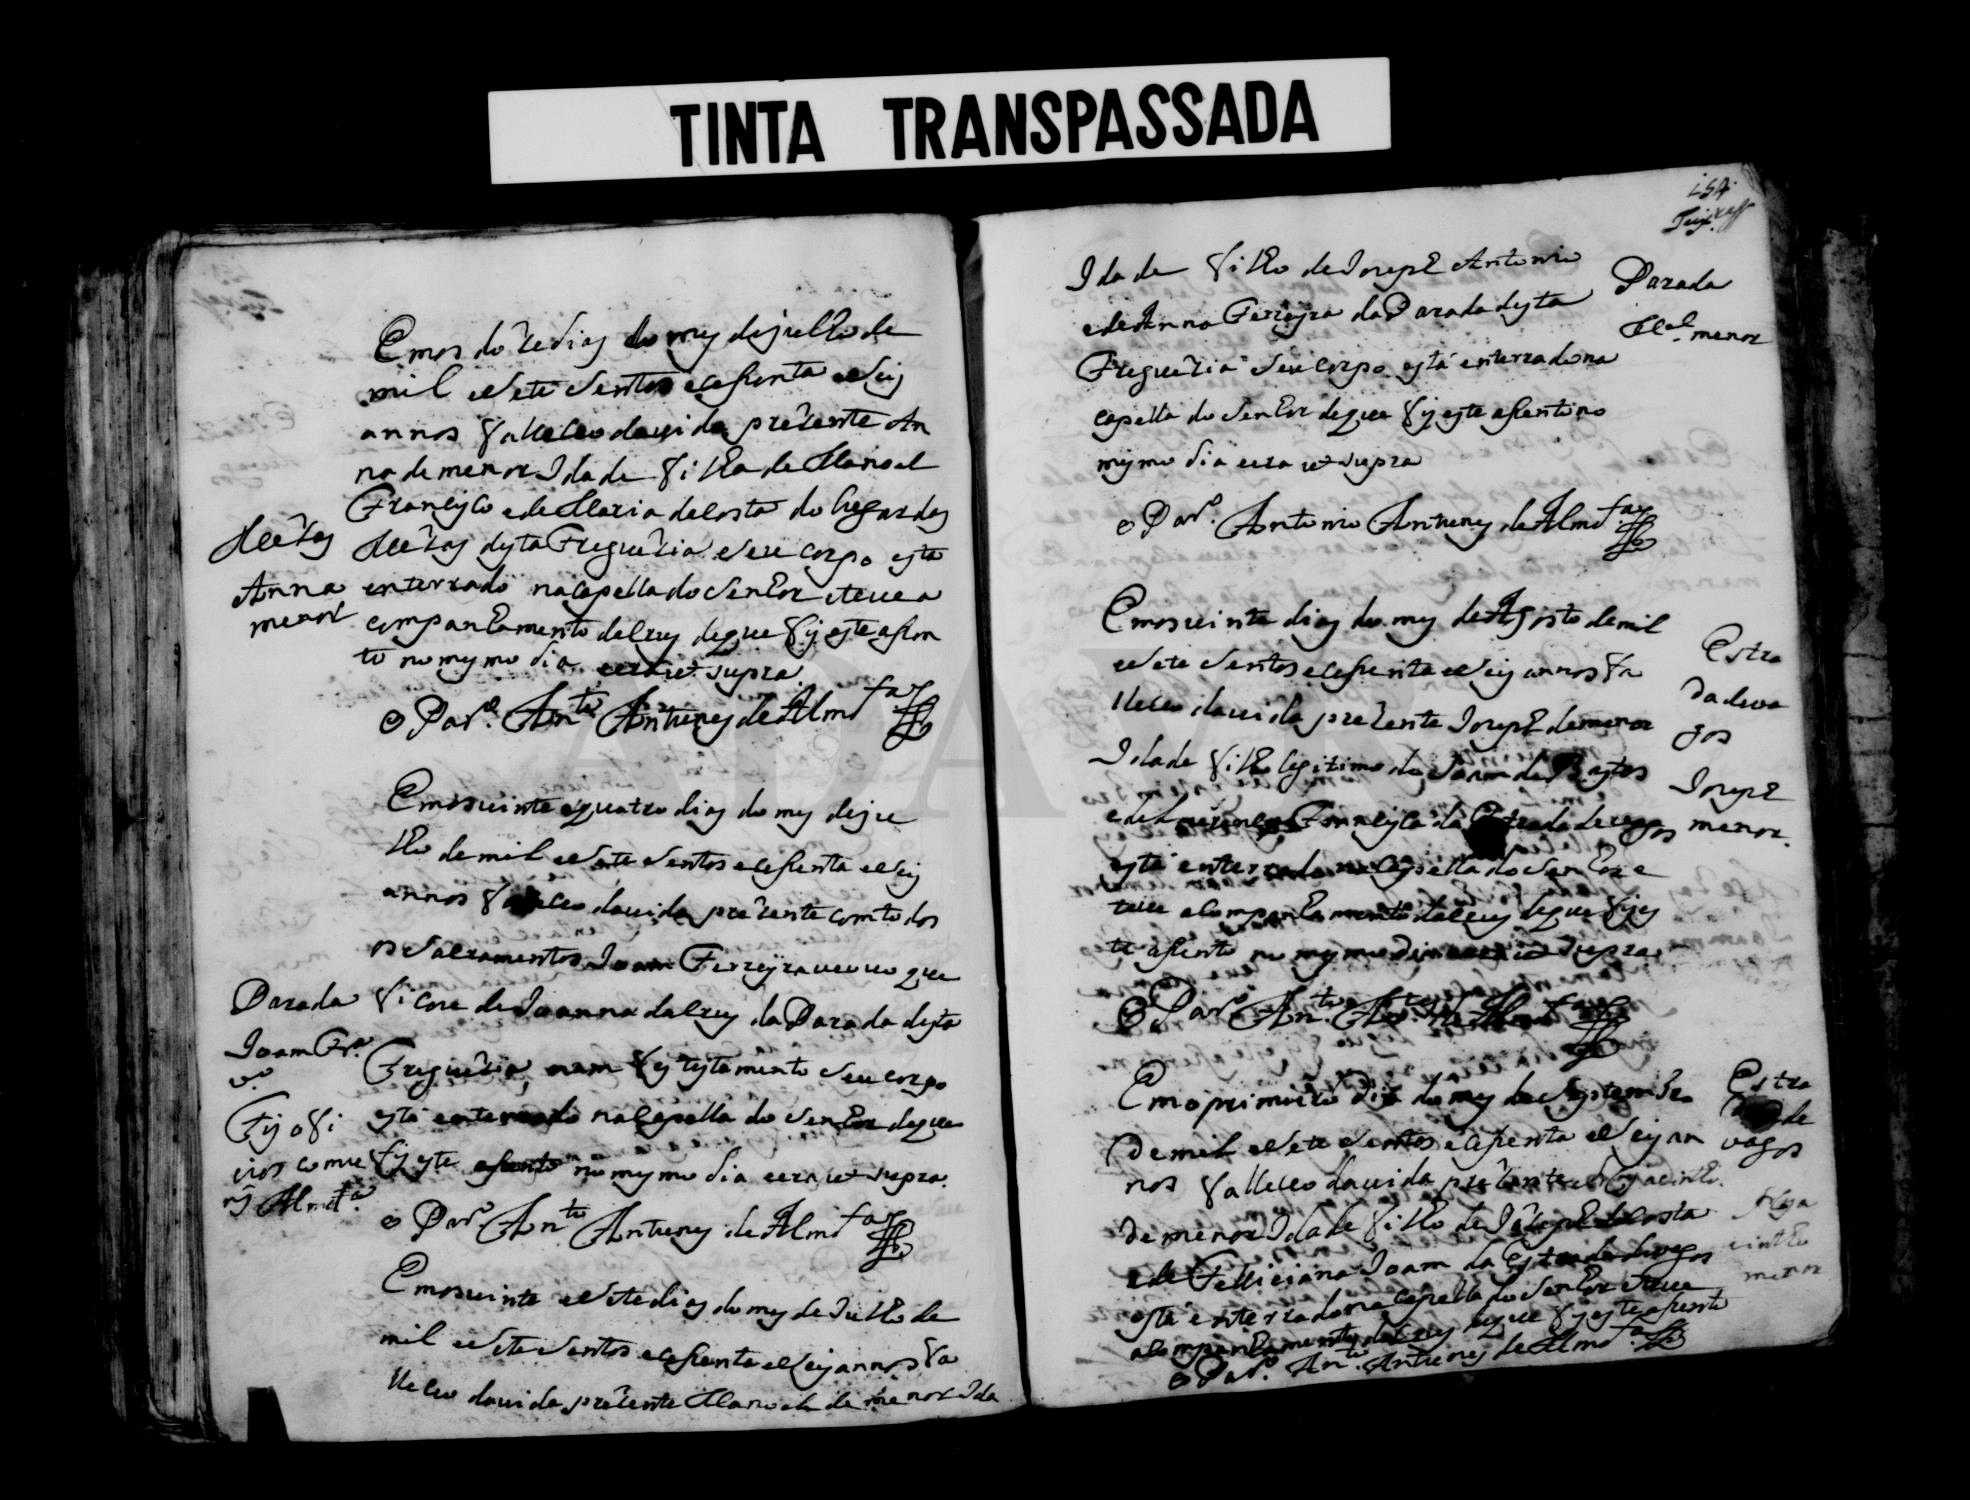 TINTA TRANSPASSADA
Em os doze dias do mes de julho de
mil e sete sentos e cesenta e seis
annos falleceo da vida prezente An
na de menor Idade filha de Manoel
Francisco e de Maria da Costa do lugar das
desta Freguezia e seu corpo esta
Anna
menor
enterrado na capella do Senhor e teve a
companhamento da Crus de que fis este asen
to no mesmo dia era ut supra.
o Par.º Ant.º Antunes de Almd.ª
Em os vinte e quatro dias do mes de ju
lho de mil e sete sentos e cesenta e seis
annos faleceo da vida prezente com todos
os Sacramentos Joam Ferreyra veuvo que
Parada
ficou de Joanna da Crus da Parada desta
Joam Fr.ª
v.º
Freguezia, nam fes testamento Seu corpo
Fis ofi
esta enterrado na Capella do Senhor de que
cios
fis este asento no mesmo dia era ut supra.
Almd.ª
o Par.º Ant.º Antunes de Almd.ª
Em os vinte e sete dias do mes de Julho de
mil e sete sentos e cesenta e seis annos fa
lleceo da vida prezente Manoel de menor Ida
154
Idade filho de Joseph Antonio
Parada
e de Anna Ferreyra da Parada desta
M.el menor
Freguezia Seu corpo está enterrado na
capella do Senhor de que fis este asento no
mesmo dia era ut supra
o Par.º Antonio Antunes de Almd.ª
Em os vinte dias do mes de Agosto de mil
e sete sentos e cesenta e seis annos fa
Estra
lleceo da vida prezente Joseph de menor
da de va
gos
Idade filho legitimo de Joam de Bastos
Joseph
menor.
e de Francisca da Estrada de vagos
está enterrado na capella do Senhor e
teve acompanhamento da Crus de que fis es
te asento no mesmo dia era ut supra
o Par.º Ant.º Ant.es de Almd.ª
Em o primeiro dia do mes de Septembro
Estra
da de
vagos
de mil e sete sentos e cesenta e seis an
nos falleceo da vida prezente Jacintho
de menor Idade filho de Joseph da Costa
e de Felliciana Joam da Estrada de vagos
cintho
menor
está enterrado na capella do Senhor e teve
acompanhamento da Crus de que fis este asento
o Par.º Ant.º Antunes de Almd.ª
ADAVR